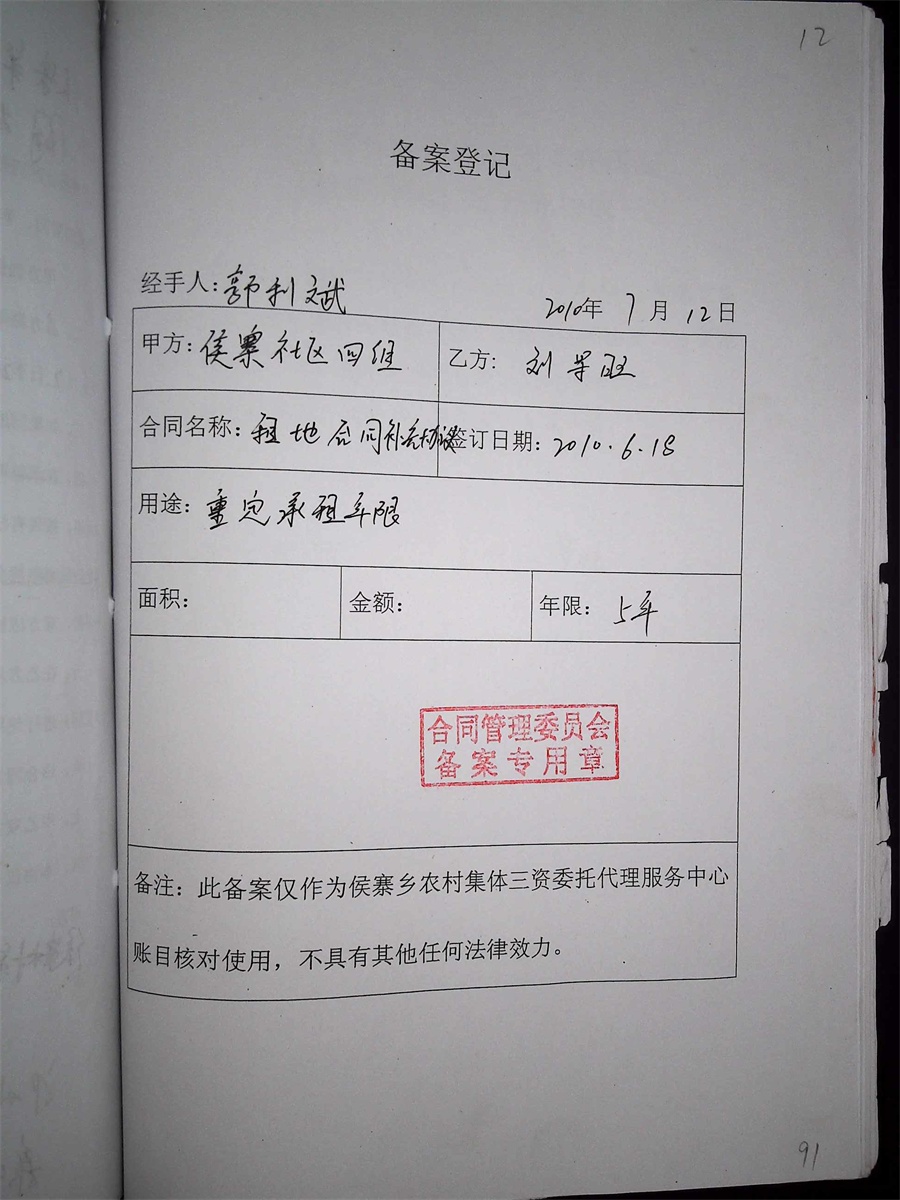 12
备案登记
经手人：郭利斌
2010年 7 月 12 日
甲方：侯寨社区四组
乙方：刘 旺
合同名称：租地合同补充协议
签订日期：2010.6.18
用途：重定承租年限
面积：
金额：
年限：5年
合同管理委员会
备案专用章
备注：此备案仅作为侯寨乡农村集体三资委托代理服务中心
账目核对使用，不具有其他任何法律效力。
91